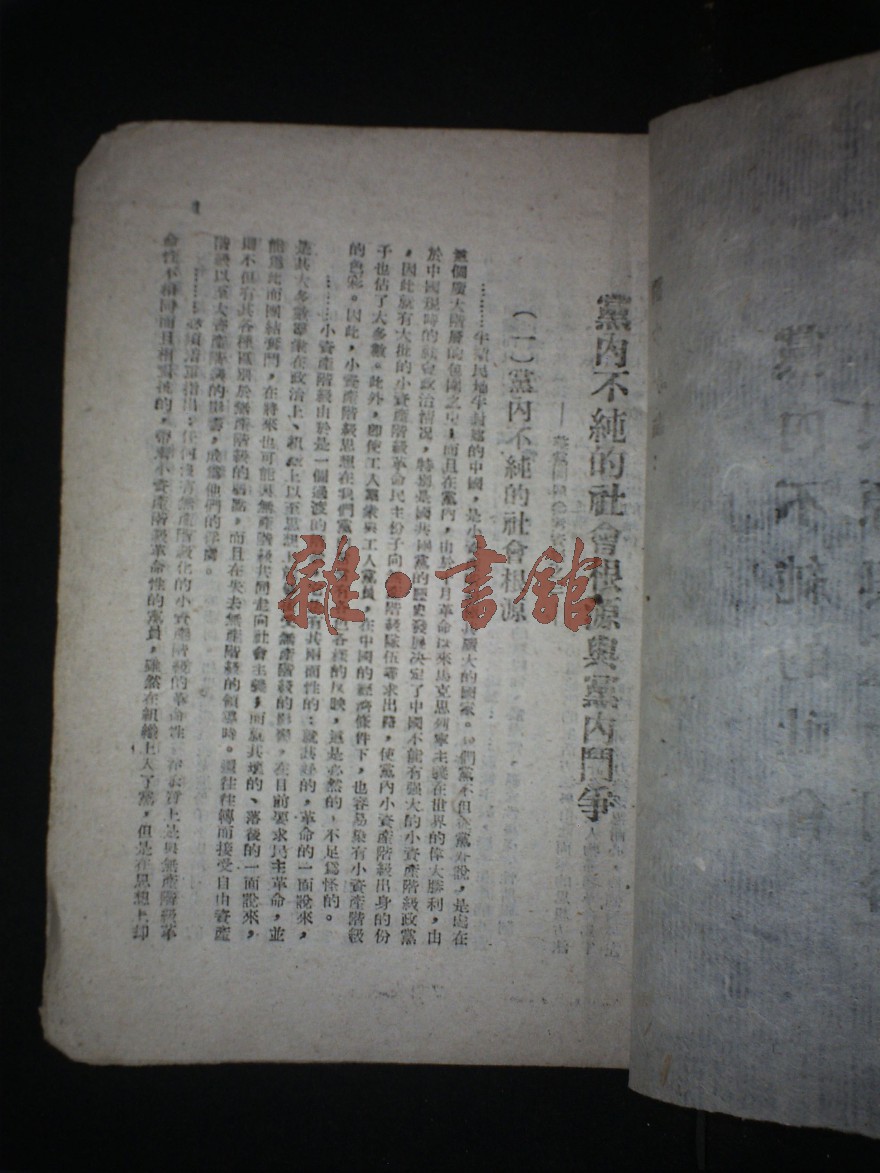 黨內不純的社會根源與黨內鬥爭
(一)黨內不純的社會根源
………半殖民地半封建的中國,是 廣大的國家。我們黨不但從黨外說,是處在
這個廣大階層的包圍之中;而且在黨內,由於十月革命以來馬克思列寧主義在世界的偉大勝利,由
於中國現時的社會政治情況,特別是國共兩黨的歷史發展決定了中國不能有強大的小資產階級政黨
,因此就有大批的小資產階級革命民主份子向無產階級隊伍尋求出路,使黨內小資產階級出身的份
子也佔了大多數。此外,即使工人羣衆與工人黨員,在中國的經濟條件下,也容易染有小資產階級
的色彩。因此,小資產階級思想在我們黨 各樣的反映,這是必然的,不足爲怪的。
………小資產階級由於是一個過渡的 有其兩面性的:就其好的,革命的一面說來,
是其大多數羣衆在政治上、組織上以至思想上 無產階級的影響,在目前要求民主革命,並
能爲此而團結奮鬥,在將來也可能與無產階級共同走向社會主義;而就其壞的、落後的一面說來,
則不但有其各種區別於無產階級的弱點,而且在失去無產階級的領導時。還往往轉而接受自由資產
階級以至大資產階級的影響,成爲他們的俘虜。
………必須清楚指出:任何沒有無產階級化的小資產階級的革命性,在本質上是與無產階級革
命性不相同而且相 的,帶有小資產階級革命性的黨員,雖然在組織上入了黨,但是在思想上却
1
雜·書館
黨內不純的社會